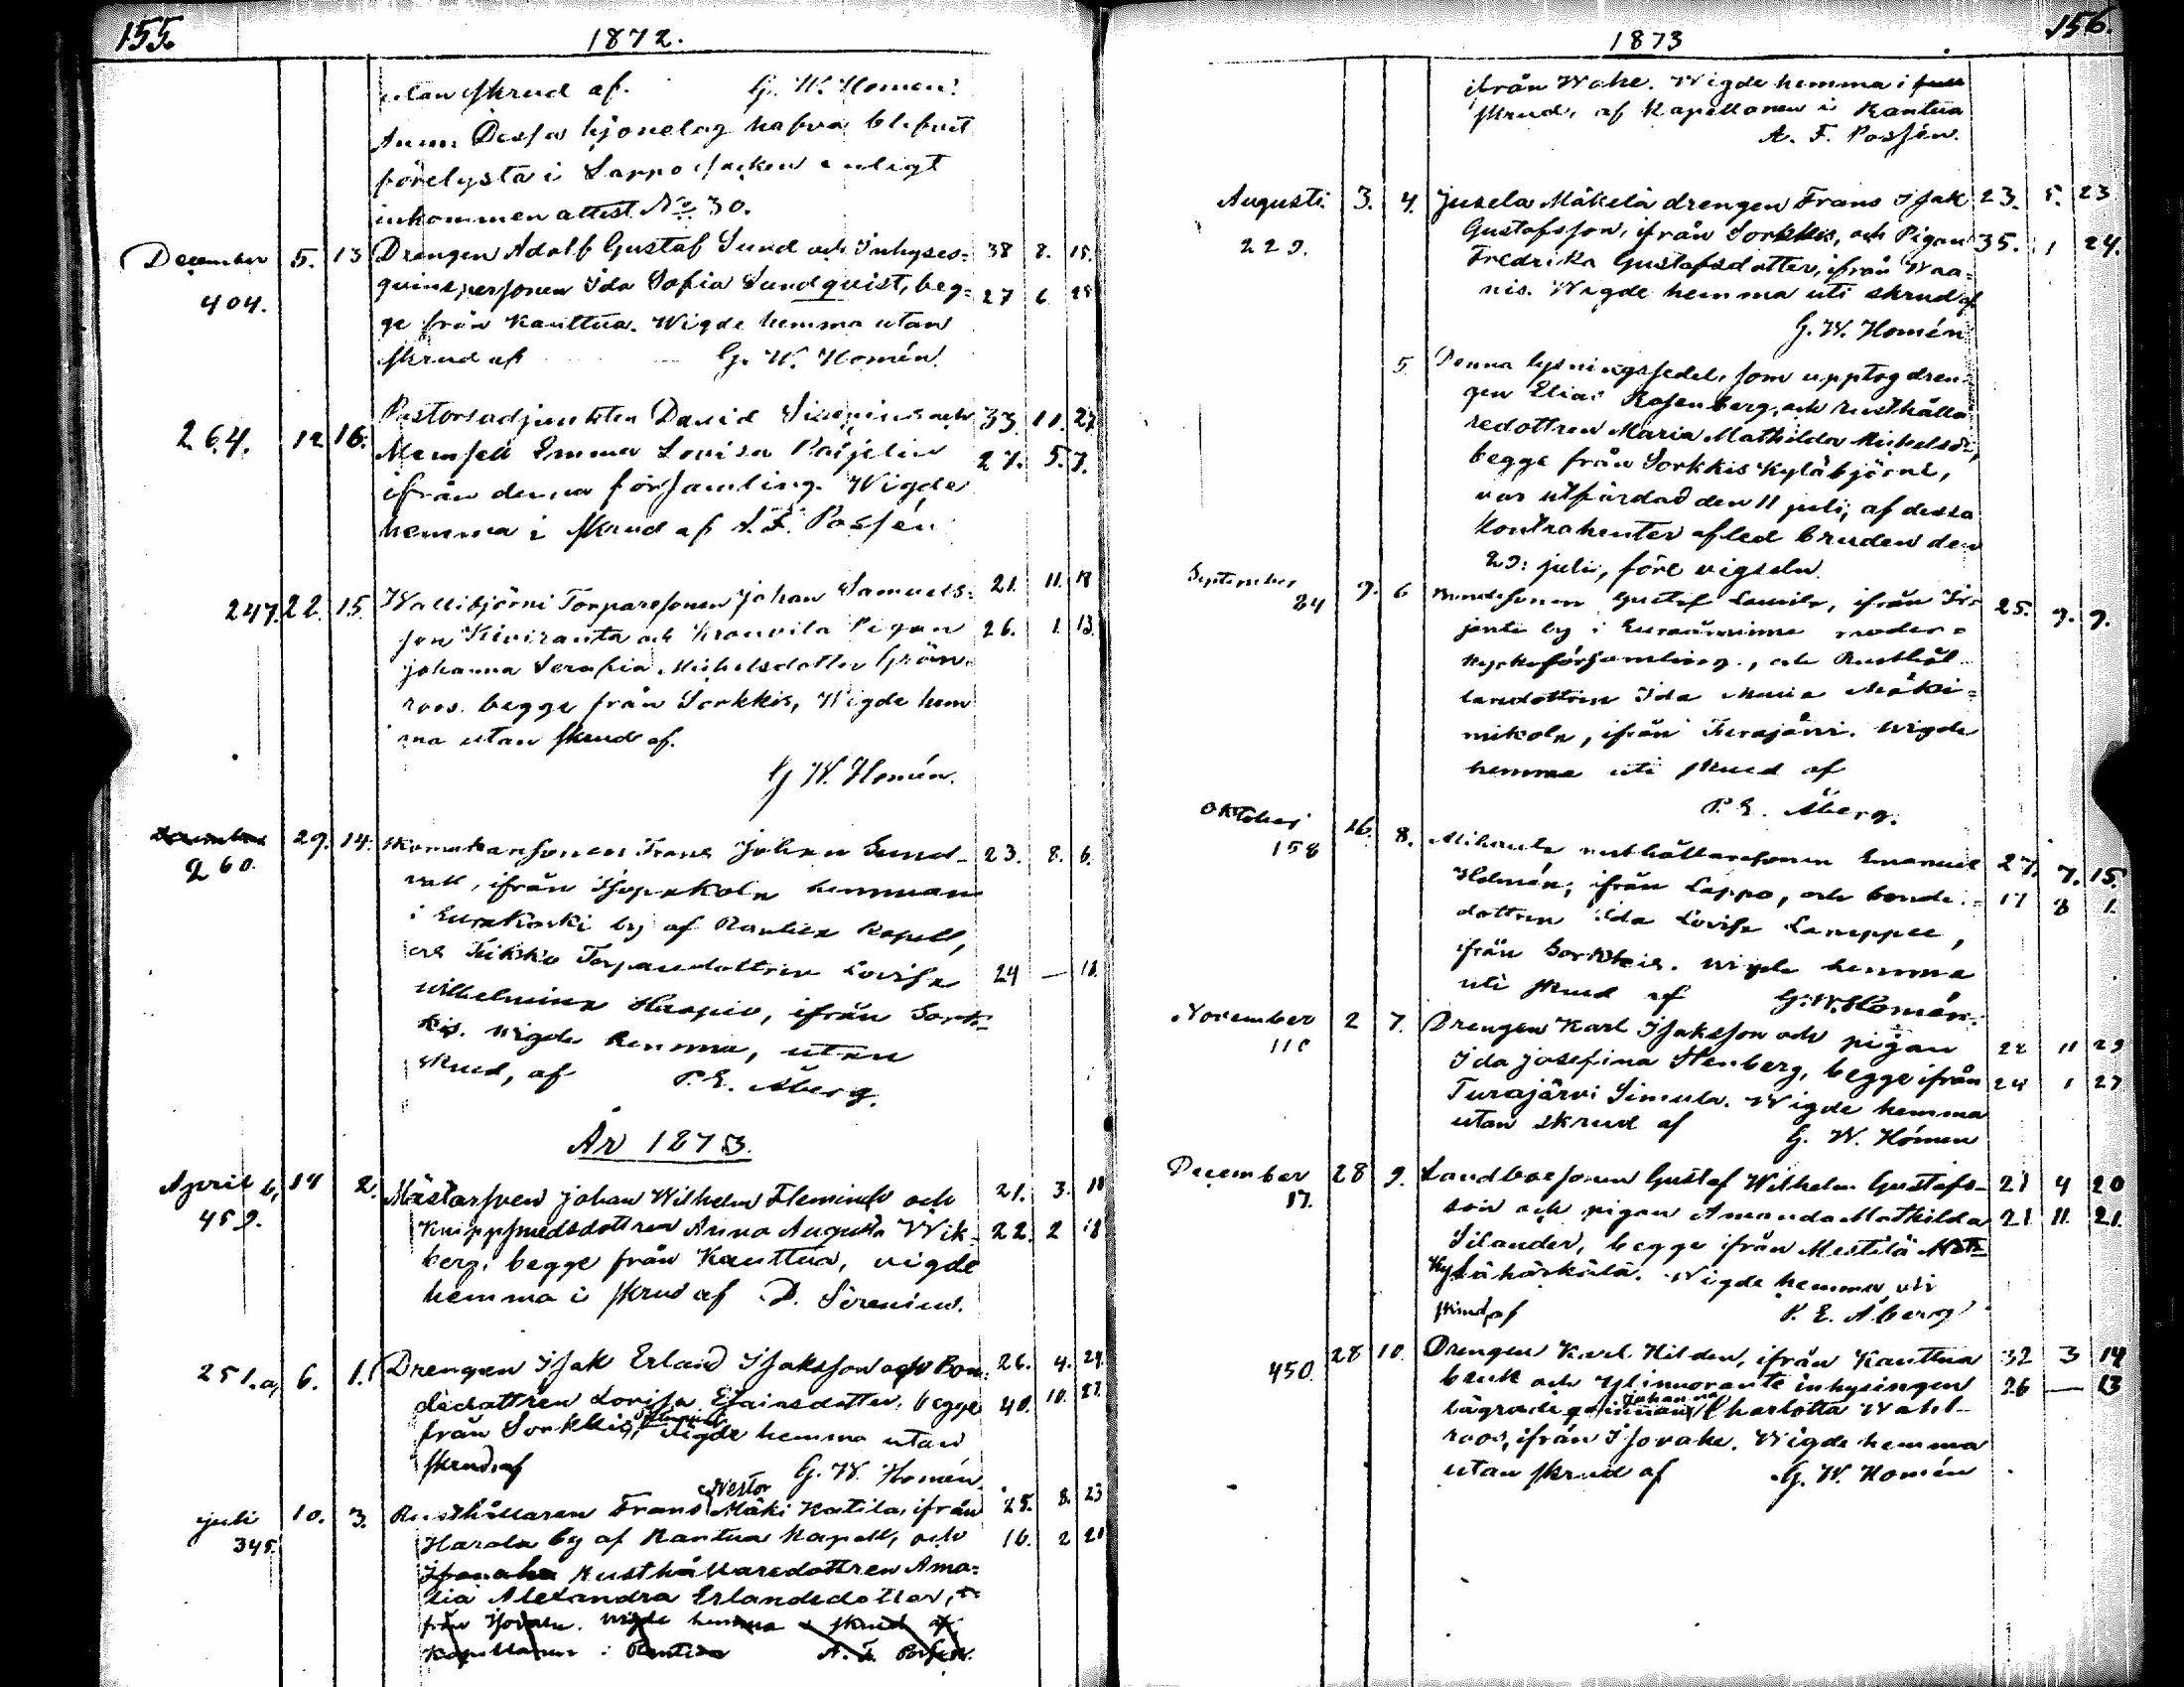 155.
1872.
utan skrud af. G. W. Homén.
Anm: Dessa hjonelag hafva blifvit
förelysta i Lappo socken enligt
inkommen attest No 30.
December 5. 13 Drengen Adolf Gustaf Lund och Inhyses- 38 8. 15.
404. qvinspersonen Ida Sofia Lundquist, beg- 27 6 25
ge från Kauttua. Wigde hemma utan
skrud af G. W. Homén.
264. 12 16. Pastorsadjunkten David Sirenius och 33. 11. 27
Memsell Emma Lovisa Paijelin 27. 5. 7.
ifrån denna församling. Wigde
hemma i skrud af A. F. Possén
247. 22. 15. Wallibjörni Torparesonen Johan Samuels- 21. 11. 18
son Kiviranta och Krouvila Pigan 26. 1. 13.
Johanna Serafia Michelsdotter Grön-
roos. begge från Sorkkis, Wigde hem
ma utan skrud af.
G W. Homén.
29. 14. Johan Sund- 23. 8. 6.
260. vall, ifrån hemman
i Eurakoski by af Kapell,
och Torparedottren Lovisa 24 — 18.
Wilhelmina Haapio, ifrån Sork-
kis. Wigde hemma, utan
skrud, af P. E. Åberg.
År 1873.
April b, 14 2. Mästarsven Johan Wilhelm Fleminch och 21. 3. 18
459. Knippsmedsdottren Anna Augusta Wik- 22. 2 18
berg, begge från Kauttua, vigde
hemma i skrud af D. Sirenius.
251.a, 6. 1. Drengen Isak Erland Isaksson och Bon- 26. 4. 29.
dedottren Lovisa Esaiasdotter, begge 40. 10. 27.
från Sorkkis, vigde hemma utan
skrud, af G. W. Homén.
Nestor
juli 10. 3. Rusthållaren Frans Mäki Katila, ifrån 25. 8. 23
345. Harola by af Kantua Kapell, och 16. 2 20
Isovahe Rusthållaredottren Ama-
lia Alexandra Erlandsdotter, i-
från Isovahe. Wigde hemma i skrud af
Kapellanen i Kantua A. F. Possén.
156.
1873
ifrån Wahe. Wigde hemma i full
skrud, af Kapellanen i Kantua
A. F. Possén.
Augusti 3. 4. Jusela Mäkelä drengen Frans Isak 23. 5. 23
229. Gustafsson, ifrån Sorkkis, och Pigan 35. 1 24.
Fredrika Gustafsdotter, ifrån Waa-
nis. Wigde hemma uti skrud af
G. W. Homén
5 Denna lysningssedel, som upptog dren-
gen Elias Rosenberg, och rusthålla-
redottren Maria Mathilda Michelsdr,
begge från Sorkkis Kyläbjörni,
var utfärdad den 11 juli, af dessa
Kontrahenter afled bruden den
29: juli, före vigseln.
September 9. 6 Bondesonen Gustaf Laurila, ifrån Ir- 25. 9. 9.
84 janti by i Euraåminne moder-
kyrkoförsamling, och Rusthål-
laredottren Ida Maria Mäki-
mikola, ifrån Turajärvi. Wigde
hemma uti skrud af
P. E. Åberg.
Oktober 26. 8. rusthållaresonen Emanuel 27. 7. 15.
158 Holmén, ifrån Lappo, och bonde- 17 8 1.
dottren Ida Lovisa Lamppee,
ifrån Sorkkis. Wigde hemma
uti skrud af G. W. Homén.
November 2 7. Drengen Karl Isaksson och pigan 22 11 29
110 Ida Josefina Stenberg, begge ifrån 24 1 27
Turajärvi Simula. Wigde hemma
utan skrud af G. W. Homén
December 28 9. Landboesonen Gustaf Wilhelm Gustafs- 21 4 20
17. son och pigan Amanda Mathilda 21 11. 21.
Silander, begge ifrån Mestilä
Kylähärkälä. Wigde hemma uti
skrud af P. E. Åberg
28 10. Drengen Karl Hilden, ifrån Kauttua 32 3 14
450. bruk och Ylinuoranti inhysingen 26 — 13
Johanna
bågrade qvinnan Charlotta Wahl-
roos, ifrån Isovahe. Wigde hemma
utan skrud af G. W. Homén